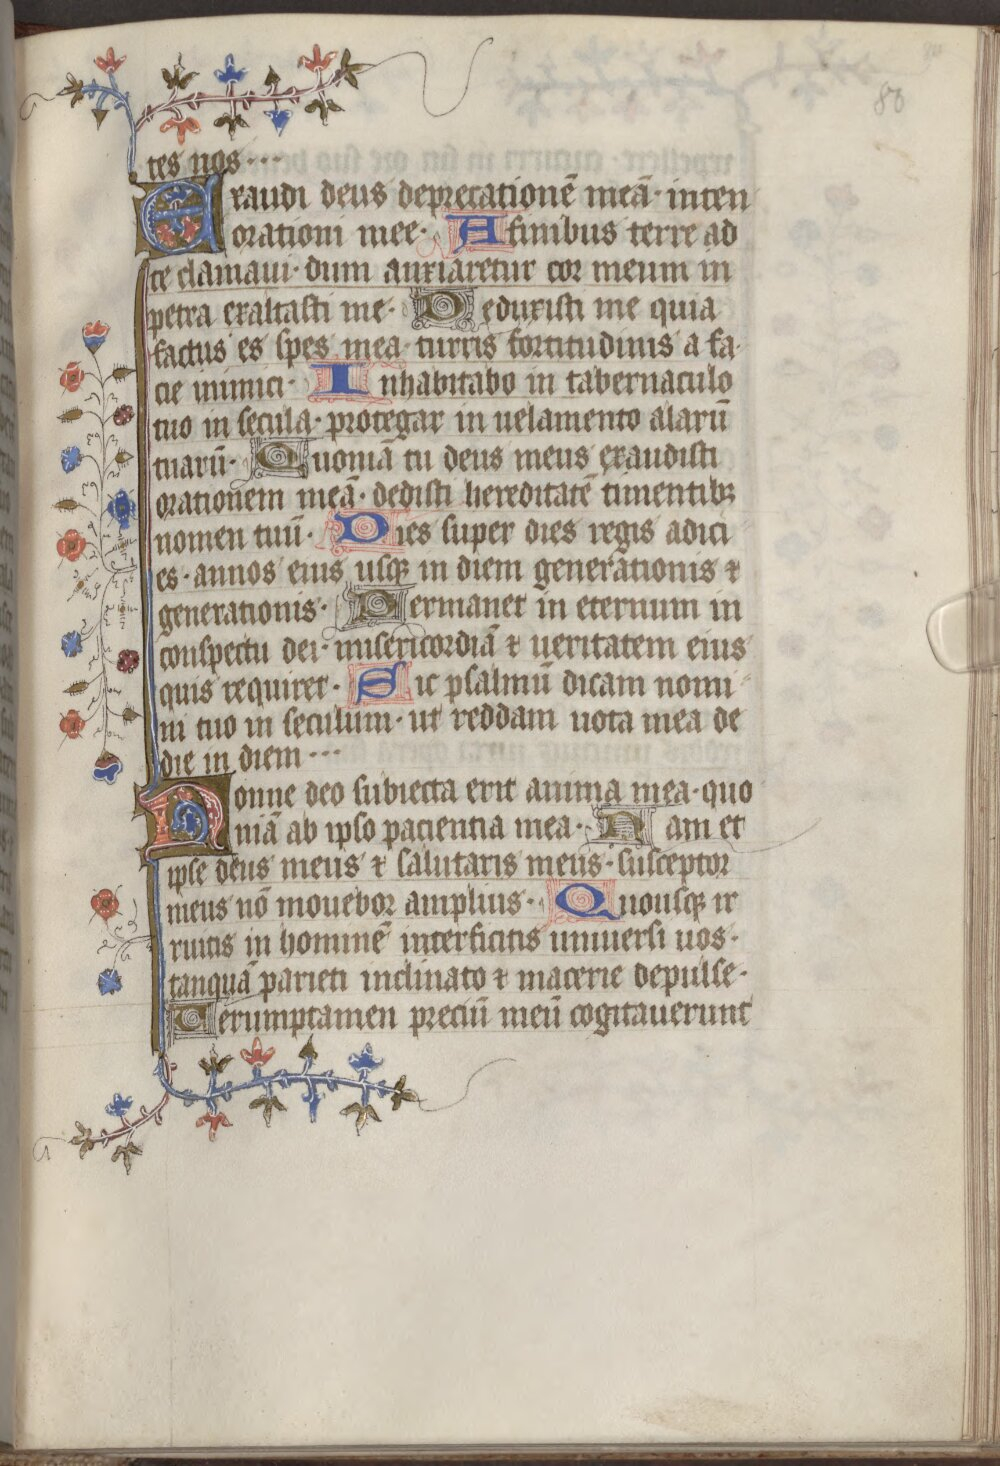 88
tes nos···
Exaudi deus deprecationē meā· inten
orationi mee· A finibus terre ad
te clamaui· dum anxiaretur cor meum in
petra exaltasti me· Deduxisti me quia
factus es spes mea· turris fortitudinis a fa
cie inimici· Inhabitabo in tabernaculo
tuo in secula· protegar in uelamento alarū
tuarū· Quoniā tu deus meus exaudisti
orationem meā· dedisti hereditatē timentibꝫ
nomen tuū· Dies super dies regis adici
es· annos eius usqꝫ in diem generationis ⁊
generationis· Permanet in eternum in
conspectu dei· misericordiā ⁊ ueritatem eius
quis requiret· Sic psalmū dicam nomi
ni tuo in seculum· ut reddam uota mea de
die in diem···
Nonne deo subiecta erit anima mea· quo
niā ab ipso pacientia mea· Nam et
ipse deus meus ⁊ salutaris meus· susceptor
meus nō mouebor amplius· Quousqꝫ ir
ruitis in hominē interficitis uniuersi uos·
tanquā parieti inclinato ⁊ macerie depulse·
Uerumptamen preciū meū cogitauerunt